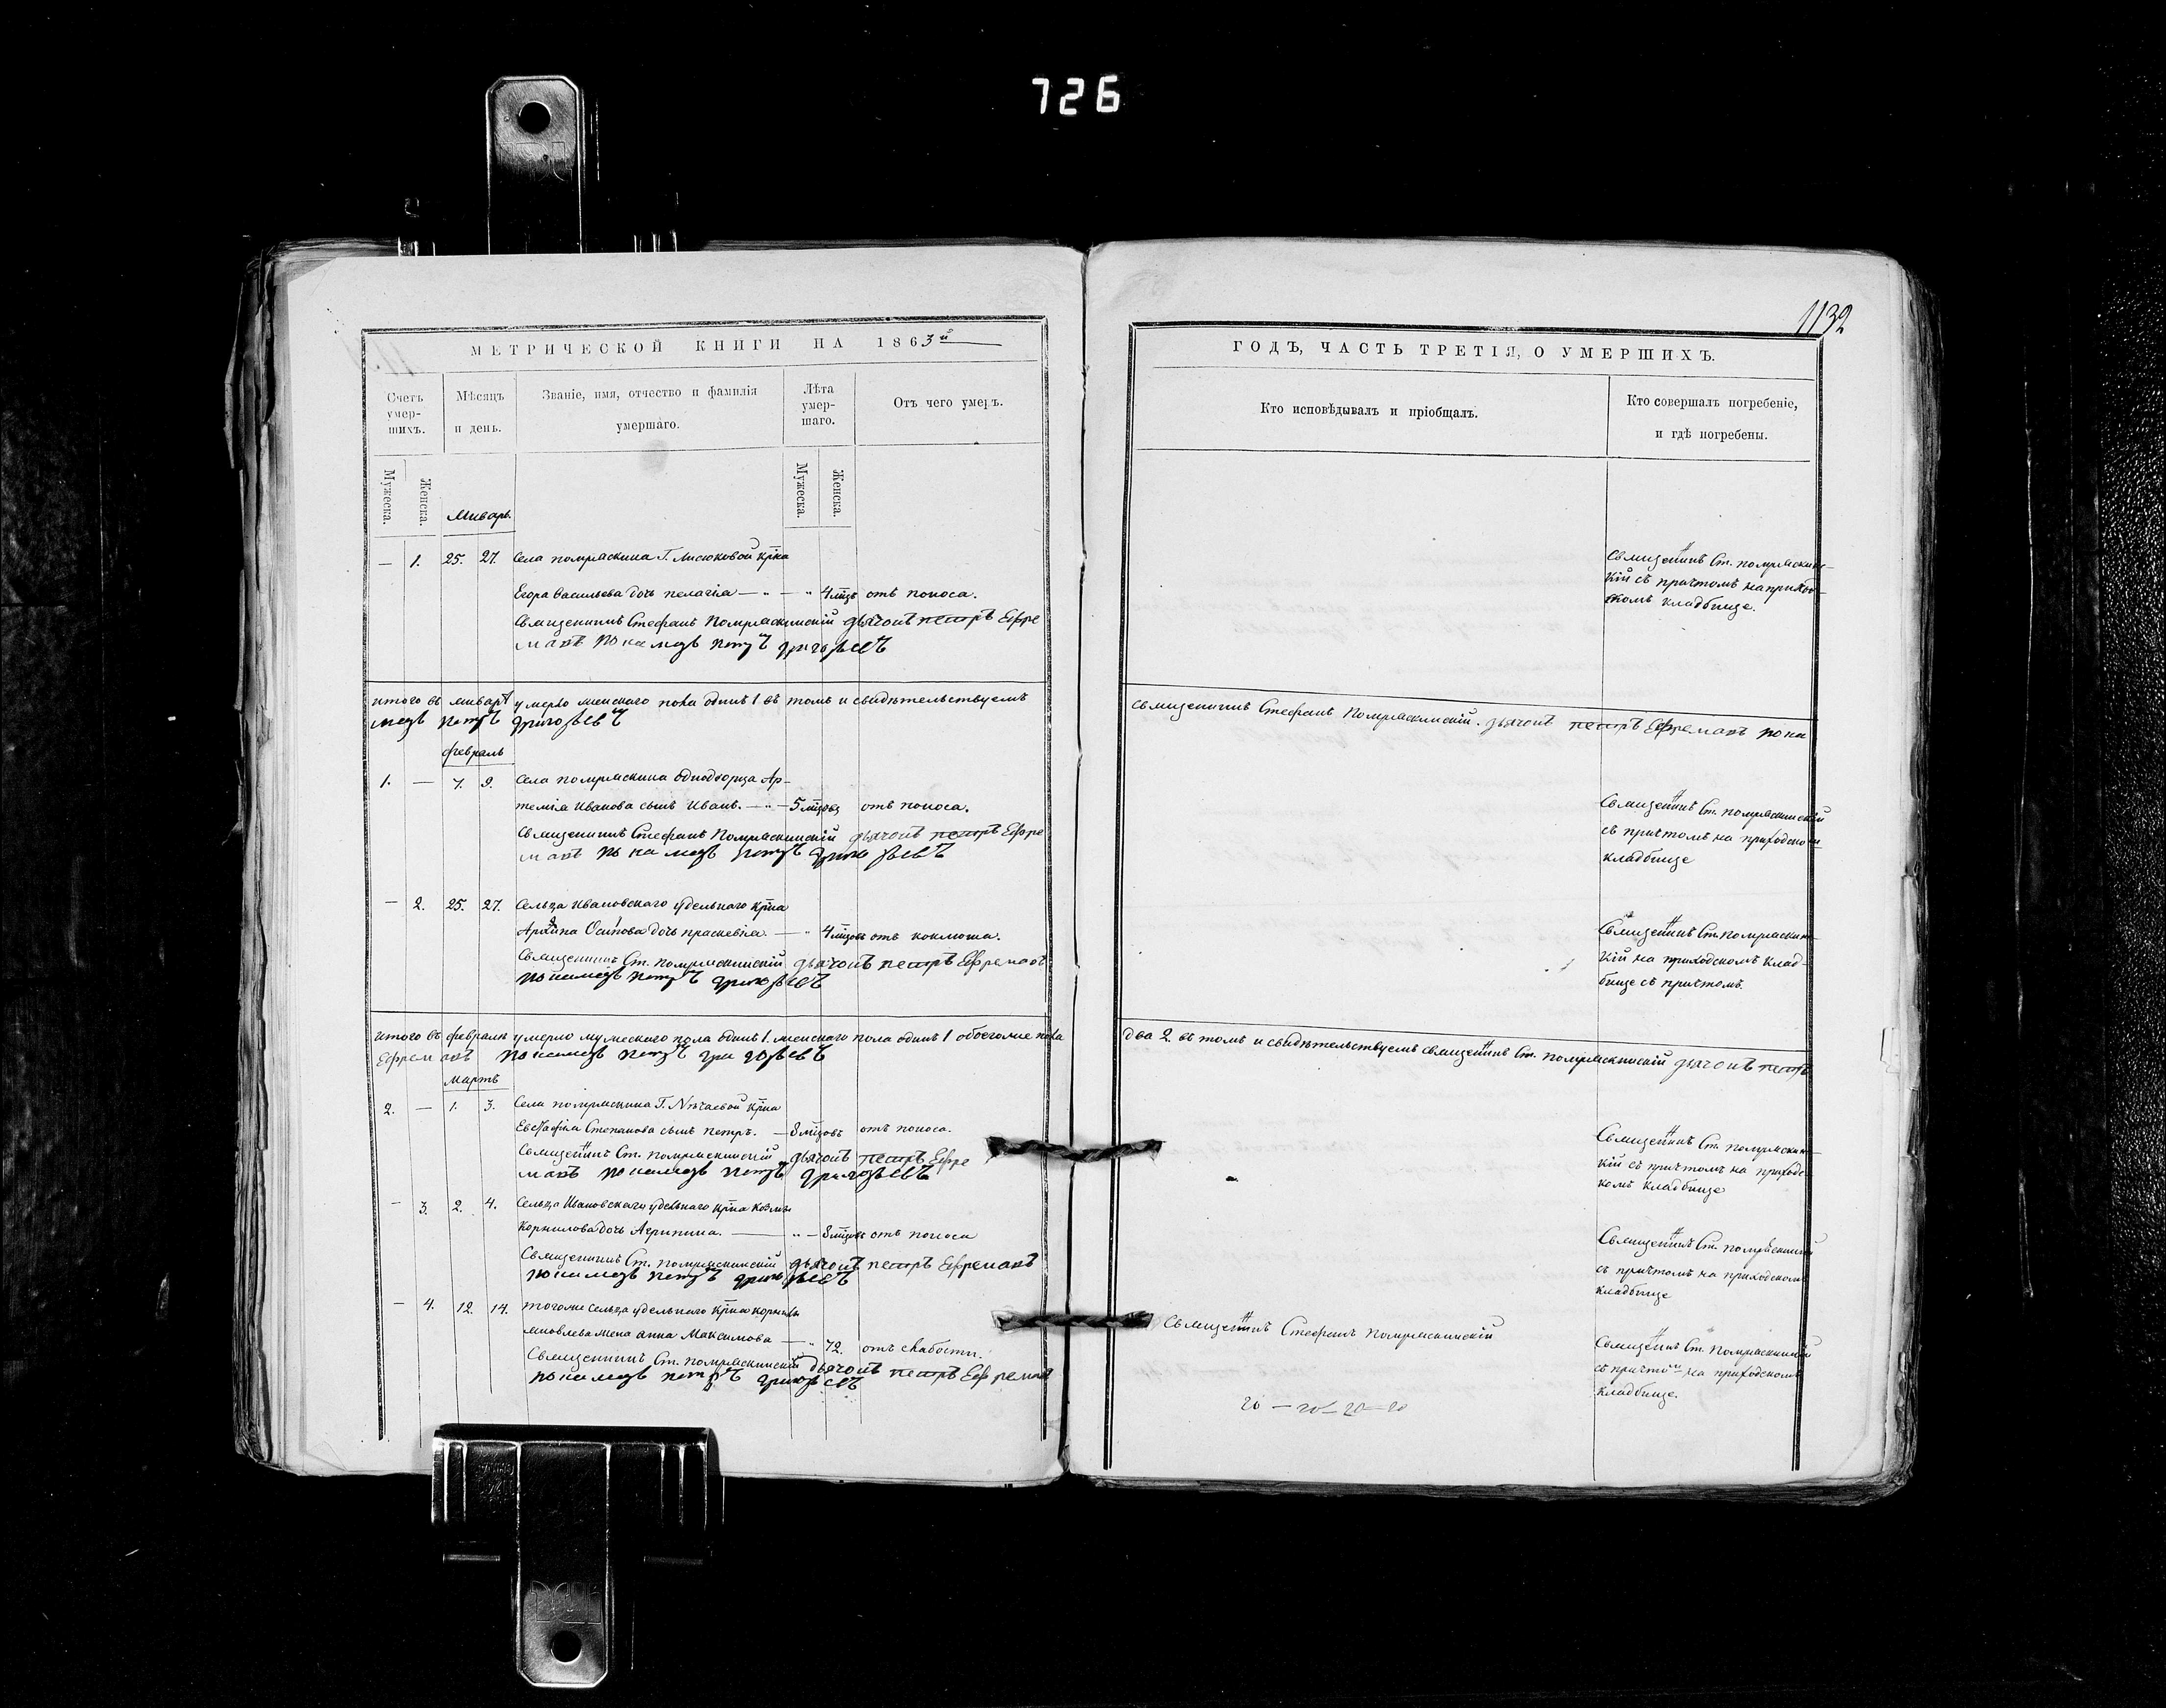 726
1132
МЕТРИЧЕСКОЙ КНИГИ НА 1863й
Счетъ умер-шихъ.
Мѣсяцъ и день.
Званіе, имя, отчество и фамилія умершаго.
Лѣта умер-шаго.
Отъ чего умеръ.
Мужеска.
Женска.
Мужеска.
Женска.
Январь.
— 1. 25. 27. Села помряскина Г. крна
Егора Васильева дочь пелагія — 4 отъ поноса.
Священникъ Стефанъ Помряскинскій дьячокъ петръ Ефре
мовъ понамарь петръ григорьевъ
итого въ январѣ умерло женскаго пола одинъ 1 въ томъ и свидѣтельствуемъ
марь петръ григорьевъ
февраль
1. — 7. 9. Села помряскина однодворца Ар-
темія Иванова сынъ Иванъ. — 5 отъ поноса.
Священникъ Стефанъ Помряскинскій дьячокъ петръ Ефре
мовъ понамарь петръ григорьевъ
— 2. 25. 27. Сельца Ивановскаго удельнаго крна
Осипова дочь праскевіа. — 4 отъ коклюша.
Священникъ Ст. помряскинскій дьячокъ петръ Ефремовъ
понамарь петръ григорьевъ
итого въ февралѣ умерло мужескаго пола одинъ 1. женскаго пола одинъ 1 обоегоже пола
Ефремовъ понамарь петръ григорьевъ
Мартъ
2. — 1. 3. Села помряскина Г. Нѣчаевой крна
Евстафіа Степанова сынъ петръ. — 8 отъ поноса.
Священникъ Ст. помряскинскій дьячокъ петръ Ефре
мовъ понамарь петръ григорьевъ
— 3. 2. 4. Сельца Ивановскаго удельнаго крна Козмы
Корнилова дочь Агрипина. — 8 отъ поноса
Священникъ Ст. помряскинскій дьячокъ петръ Ефремовъ
понамарь петръ григорьевъ
— 4. 12. 14. тогоже сельца удельнаго крна
яковлева жена анна Максимова — 72. отъ слабости.
Священникъ Ст. помряскинскій дьячокъ петръ Ефремовъ
понамарь петръ григорьевъ
ГОДЪ, ЧАСТЬ ТРЕТІЯ, О УМЕРШИХЪ.
Кто исповѣдывалъ и пріобщалъ.
Кто совершалъ погребеніе,
и гдѣ погребены.
Священникъ Ст. помряскинс-
кій съ причтомъ на приход-
скомъ кладбище.
священникъ Стефанъ Помряскинскій. дьячокъ петръ Ефремовъ пона
Священникъ Ст. помряскинскій
съ причтомъ на приходском
кладбище
Священникъ Ст. помряскинс-
кій на приходскомъ клад-
бище съ причтомъ.
два 2. въ томъ и свидѣтельствуемъ священникъ Ст. помряскинскій дьячокъ петръ
Священникъ Ст. помряскинс-
кій съ причтомъ на приходс-
комъ кладбище
Священникъ Ст. помряскинскій
съ причтомъ на приходскомъ
кладбище
Священникъ Стефанъ помряскинскій
Священникъ Ст. помряскинскій
съ причтомъ на приходскомъ
кладбище.
20 — 20 — 20 — 20